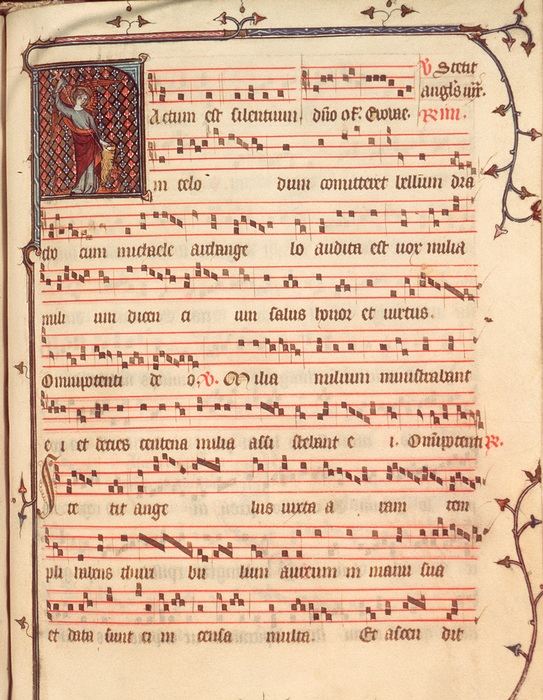 Actum est silentium dño oR̃. Evovae. ℣ Stetit
anglꝰ iux̃. R̃ iiii.
in celo dum comitteret bellum dra
cho cum michaele archange lo audita est vox milia
mili um dicen ci um salus honor et virtus.
Omnipotenti de o. ℣. Milia milium ministrabant
e i et decies centena milia assi stebant e i. Omĩpotenti ℟.
Ste tit ange lus iuxta a ram tem
pli habens thuri bu lum aureum in manu sua
et data sunt ei in censa multa. Et ascen dit